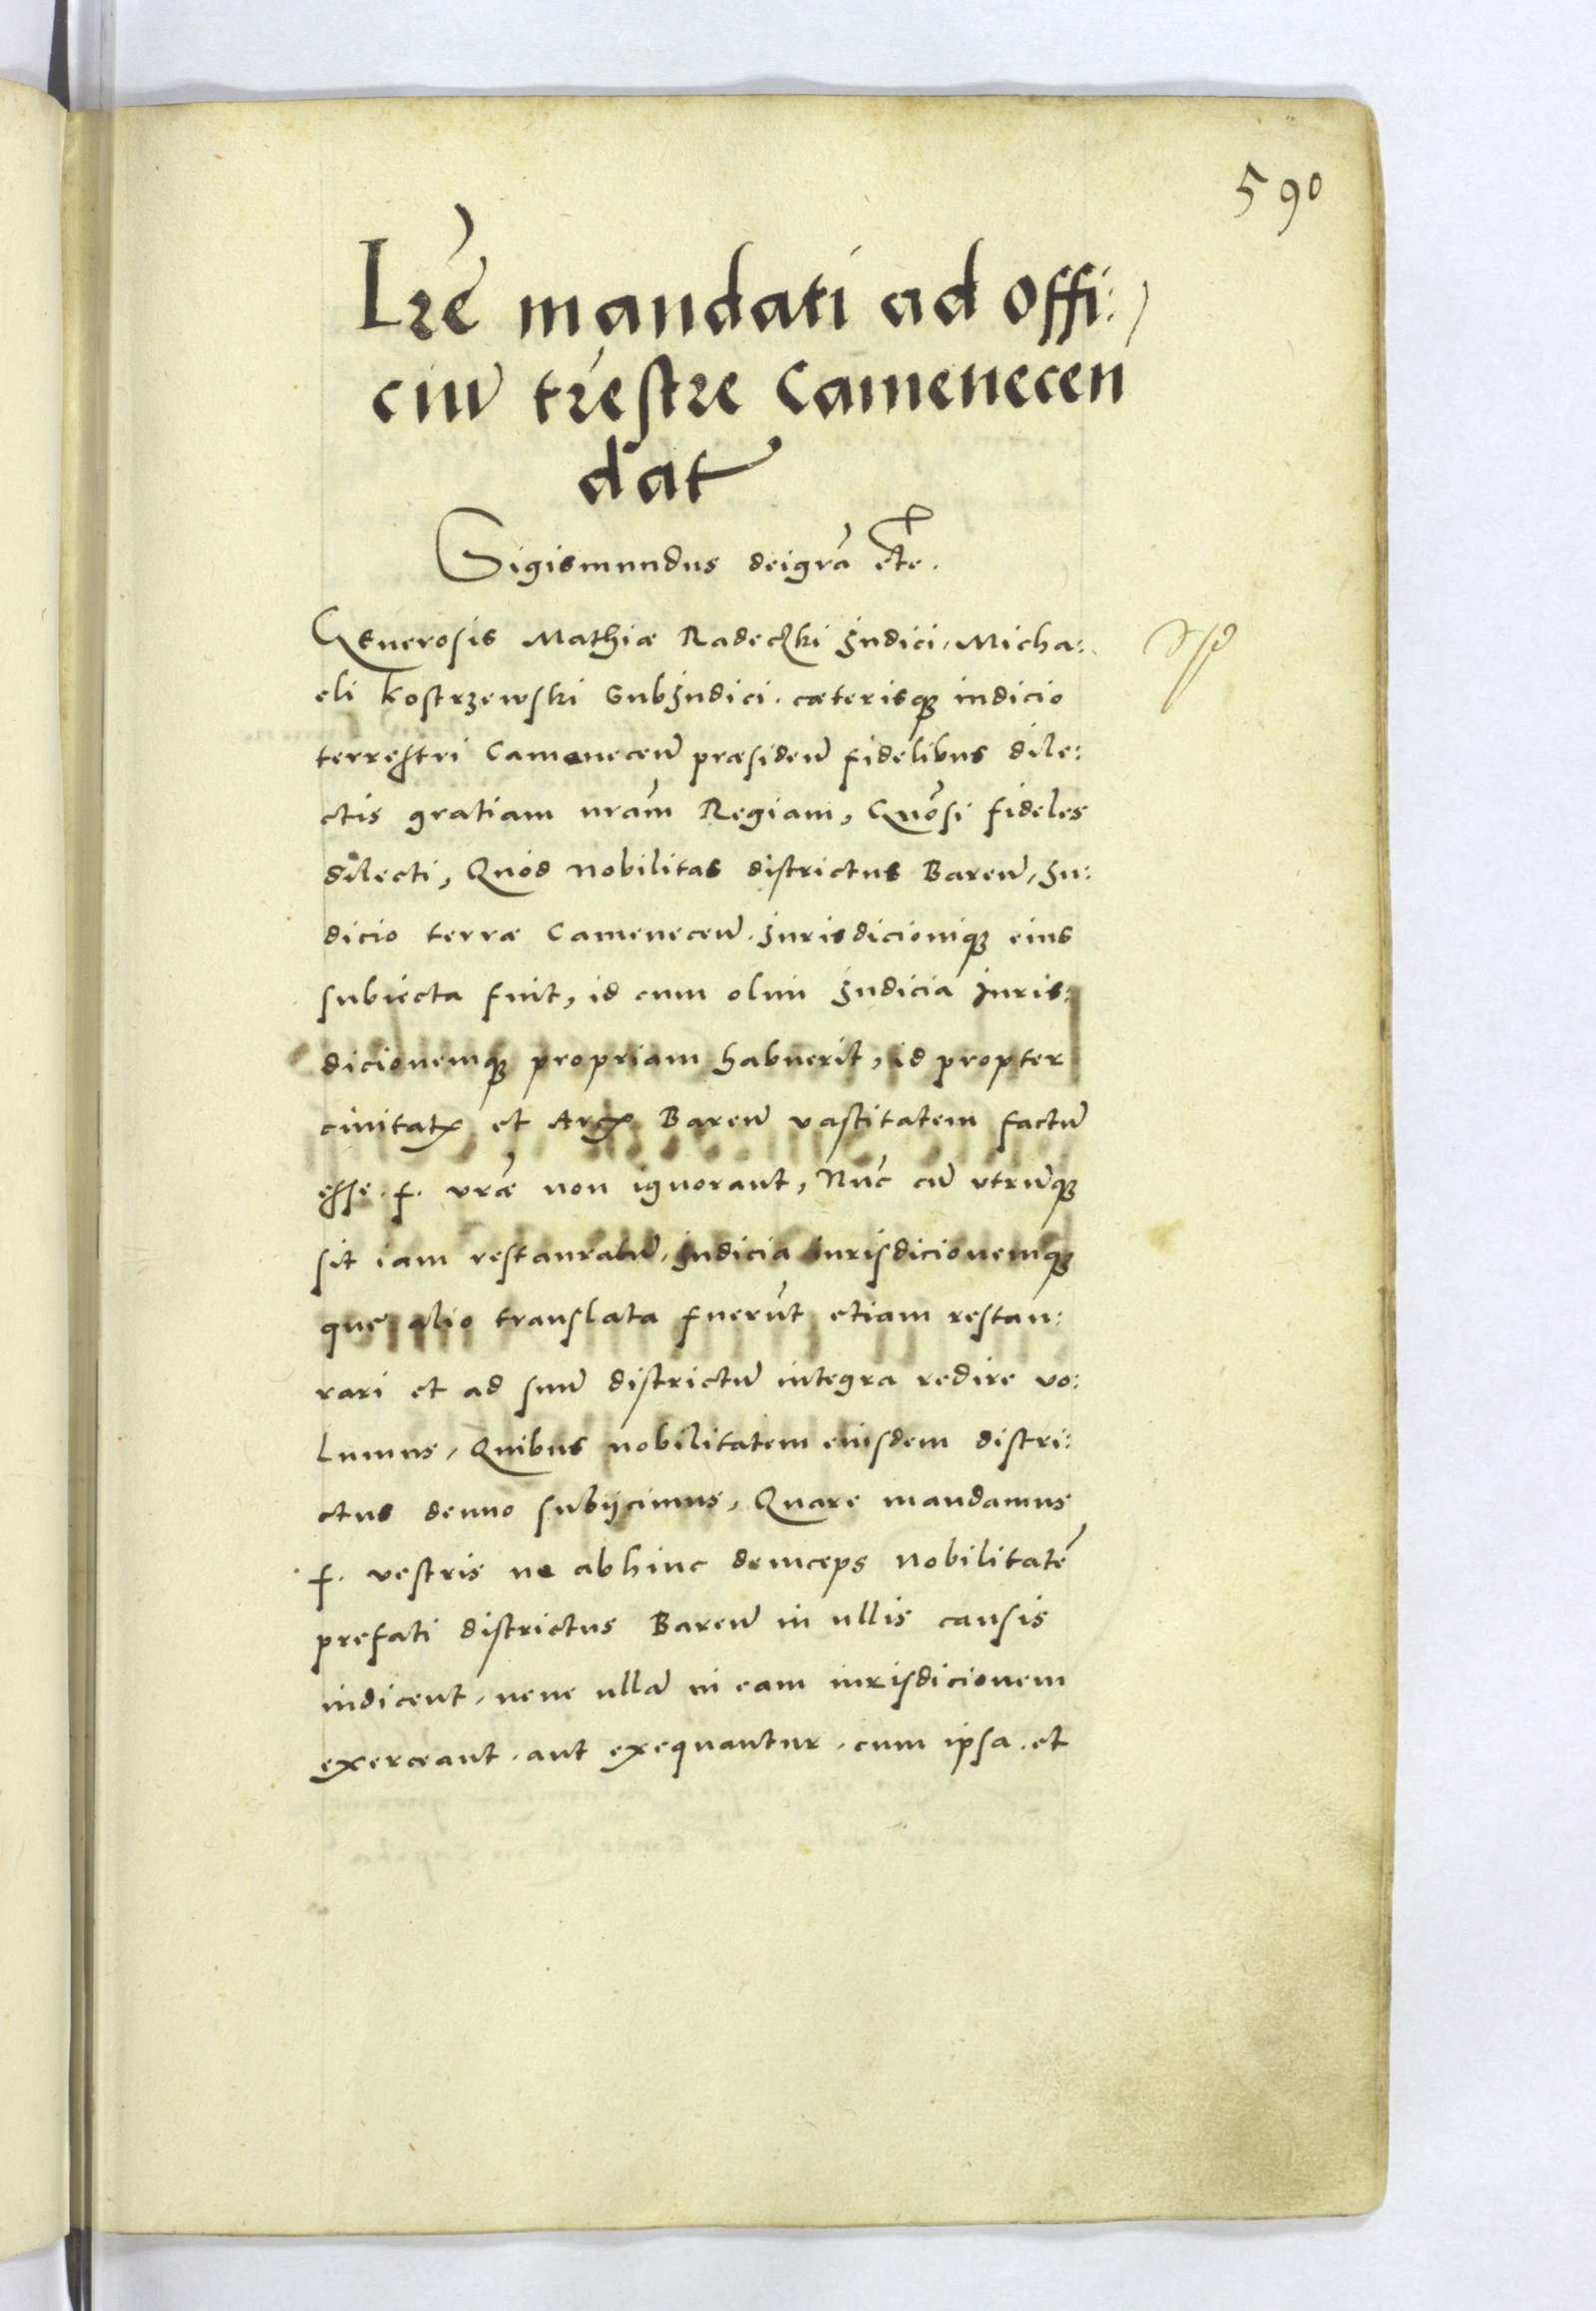 590
Lr̃e mandati ad offi:
ciu̅ tr̃estre Camenecen̅
dat
Sigismundus deigrã etc.
Generosis Mathiæ Radeczki Judici, Micha:
eli Kostrzewski SubJudici. cæterisq₃ iudicio
terrestri Camenecen̅ præsiden̅ fidelibus dile:
ctis gratiam nram̃ Regiam, Gnõsi fideles
dilecti, Quód Nobilitas districtus Baren̅, Ju:
dicio terræ Camenecen̅. Jurisdicioniq₃ eius
subiecta fuit, id cum olim Judicia Juris:
dicionemq₃ propriam habuerit, id propter
ciuitatꝭ et Arcꝭ Baren̅ vastitatem factu̅
esse. f. vræ̃ non ignorant, Nũc cu̅ vtru̅q₃
sit iam restauratu̅, Judicia iurisdicionemq₃
que alio translata fuerũt etiam restau:
rari et ad suu̅ districtu̅ integra redire vo:
lumus, Quibus nobilitatem eiusdem distri:
ctus denuo subijcimus, Quare mandamus
f. vestris ne abhinc deinceps Nobilitatẽ
prefati districtus Baren̅ in ullis causis
iudicent, neue ulla̅ in eam iurisdicionem
exerceant. aut exequantur. cum ipsa. et